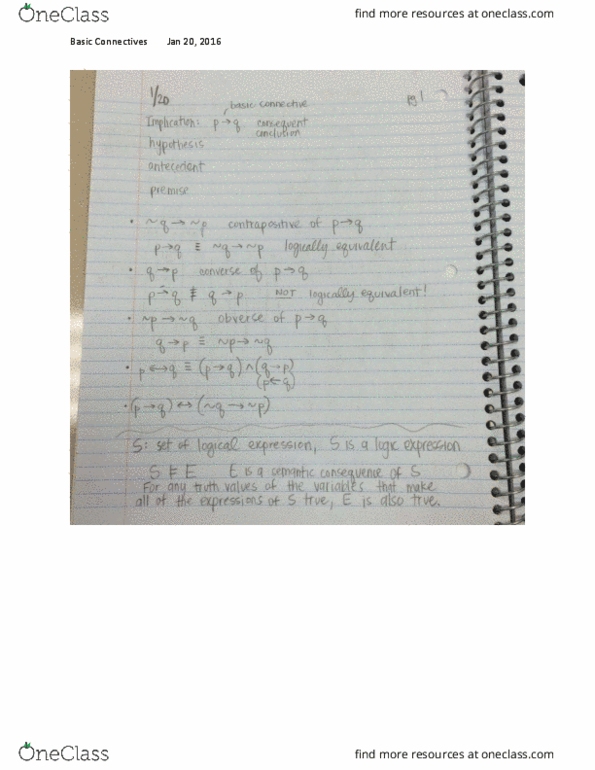 OneClass find more resources at oneclass.com
Basic Connectives Jan 20, 2016
1/20 basic connective pg 1
Implication: p → q consequent
conclusion
hypothesis
antecedent
premise
• ~q → ~p contrapositive of p→q
p→q ≡ ~q → ~p logically equivalent
• q→p converse of p→q
p→q ≢ q→p NOT logically equivalent!
• ~p → ~q obverse of p→q
q→p ≡ ~p → ~q
• p↔q ≡ (p→q) ∧ (q→p)
(p←q)
• (p→q) ↔ (~q → ~p)
S: set of logical expression, S is a logic expression
S ⊨ E E is a semantic consequence of S
For any truth values of the variables that make
all of the expressions of S true, E is also true.
OneClass find more resources at oneclass.com